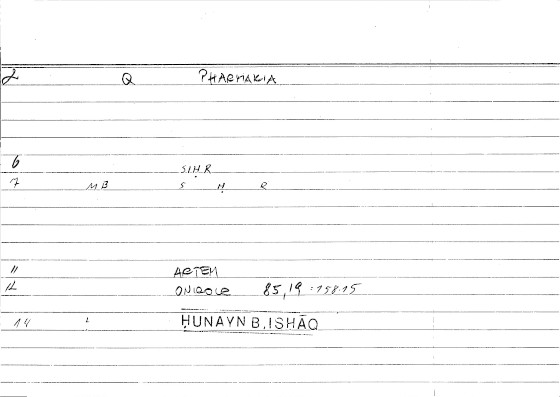 2 Q PHARMAKIA
6 SIḤR
7 MB S Ḥ R
11 ARTEM
12 ONIROCR 85,19 = 158.15
14 L ḤUNAYN B. ISHĀQ